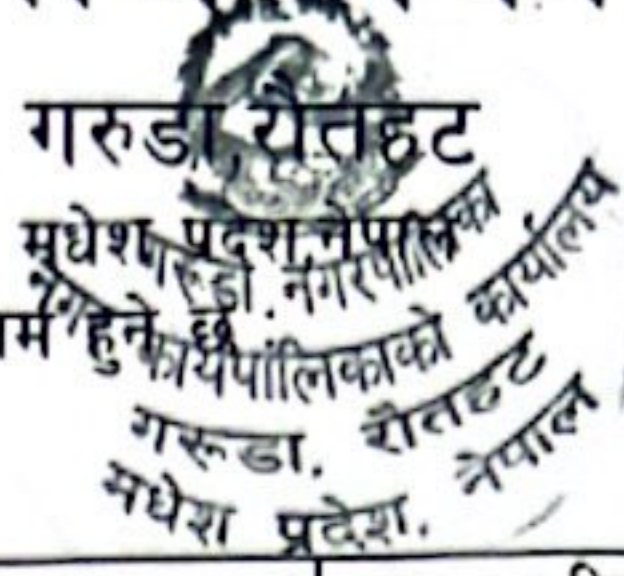 गरुडा, रौतहट
मधेश प्रदेश, नेपाल
हुने छ
गरूडा. नगरपालिका
नगर कार्यपालिकाको कार्यालय
गरूडा, रौतहट
मधेश प्रदेश, नेपाल